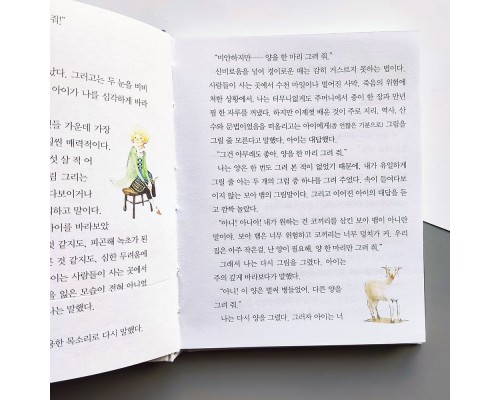 줘!"
았다. 그러고는 두 눈을 비비
아이가 나를 심각하게 바라
들 가운데 가장
훨씬 매력적이다.
섯 살 적 어
그림 그리는
다보이거나
하고 말이다.
아이를 바라보았
것 같지도, 피곤해 녹초가 된
은 것 같지도, 심한 두려움에
이는 사람들이 사는 곳에서
을 잃은 모습이 전혀 아니었
는 말했다.
용한 목소리로 다시 말했다.
"미안하지만── 양을 한 마리 그려 줘."
신비로움을 넘어 경이로운 때는 감히 거스르지 못하는 법이다.
사람들이 사는 곳에서 수천 마일이나 떨어진 사막, 죽음의 위험에
처한 상황에서, 나는 터무니없게도 주머니에서 종이 한 장과 만년
필 한 자루를 꺼냈다. 하지만 이제껏 배운 것이 주로 지리, 역사, 산
수와 문법이었음을 떠올리고는 아이에게(좀 언짢은 기분으로) 그림을
그릴 줄 모른다고 말했다. 아이는 대답했다.
"그건 아무래도 좋아. 양을 한 마리 그려 줘."
나는 양은 한 번도 그려 본 적이 없었기 때문에, 내가 유일하게
그릴 줄 아는 두 개의 그림 중 하나를 그려 주었다. 속이 들여다보
이지 않는 보아 뱀의 그림말이다. 그리고 이어진 아이의 대답을 듣
고 깜짝 놀랐다.
"아니! 아니야! 내가 원하는 건 코끼리를 삼킨 보아 뱀이 아니란
말이야. 보아 뱀은 너무 위험하고 코끼리는 너무 덩치가 커. 우리
집은 아주 작은걸. 난 양이 필요해. 양 한 마리만 그려 줘."
그래서 나는 다시 그림을 그렸다. 아이는
주의 깊게 바라보다가 말했다.
"아니! 이 양은 벌써 병들었어. 다른 양을
그려 줘."
나는 다시 양을 그렸다. 그러자 아이는 너